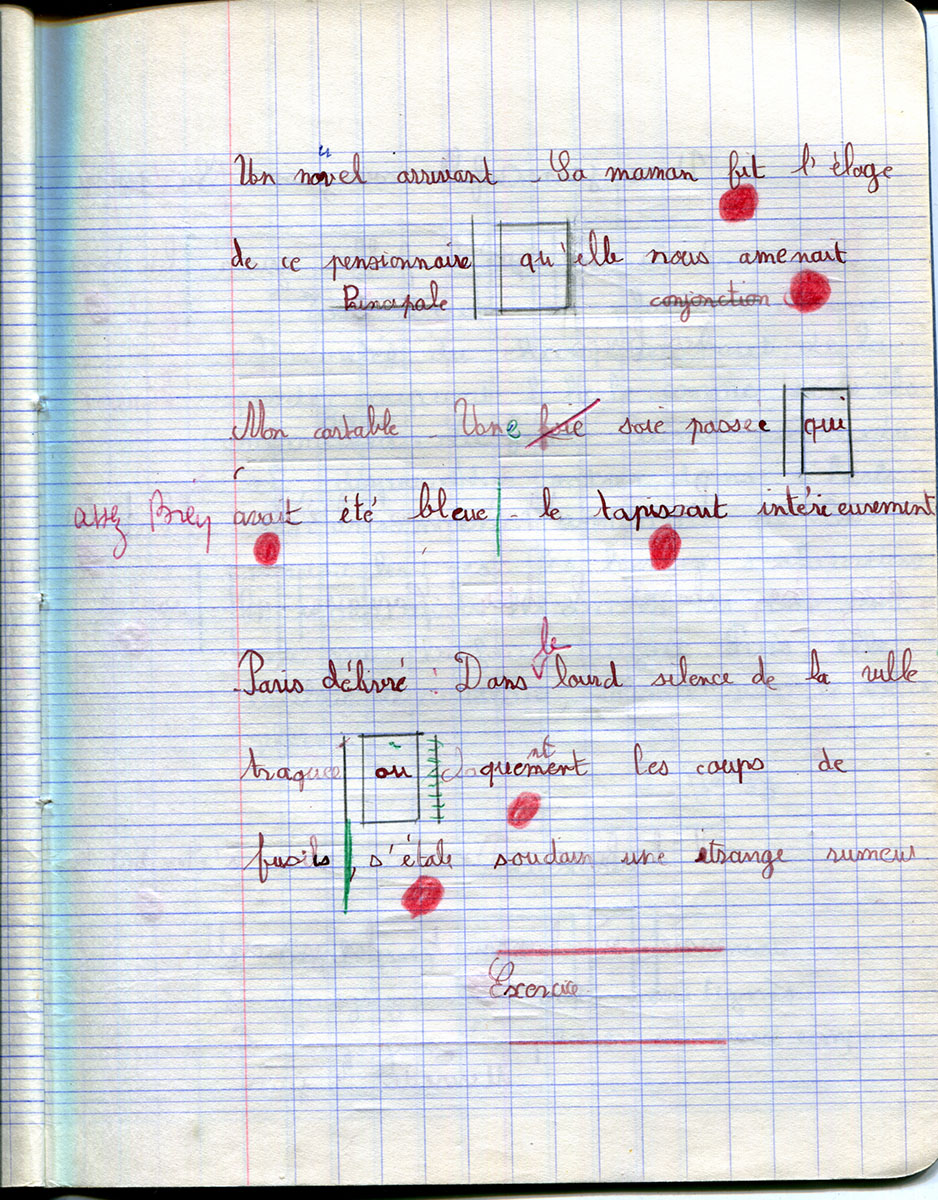 Un nouvel arrivant _ Sa maman fit l'éloge
de ce pensionnaire qu'elle nous amenait
Principale conjonction
Mon cartable _ Une soie passée qui
assez Bien avait été bleue _ le tapissait intérieurement
Paris délivré : Dans le lourd silence de la ville
traquée où claquement les coups de
nt
fusils, s'étale soudain une étrange rumeur
Exercice